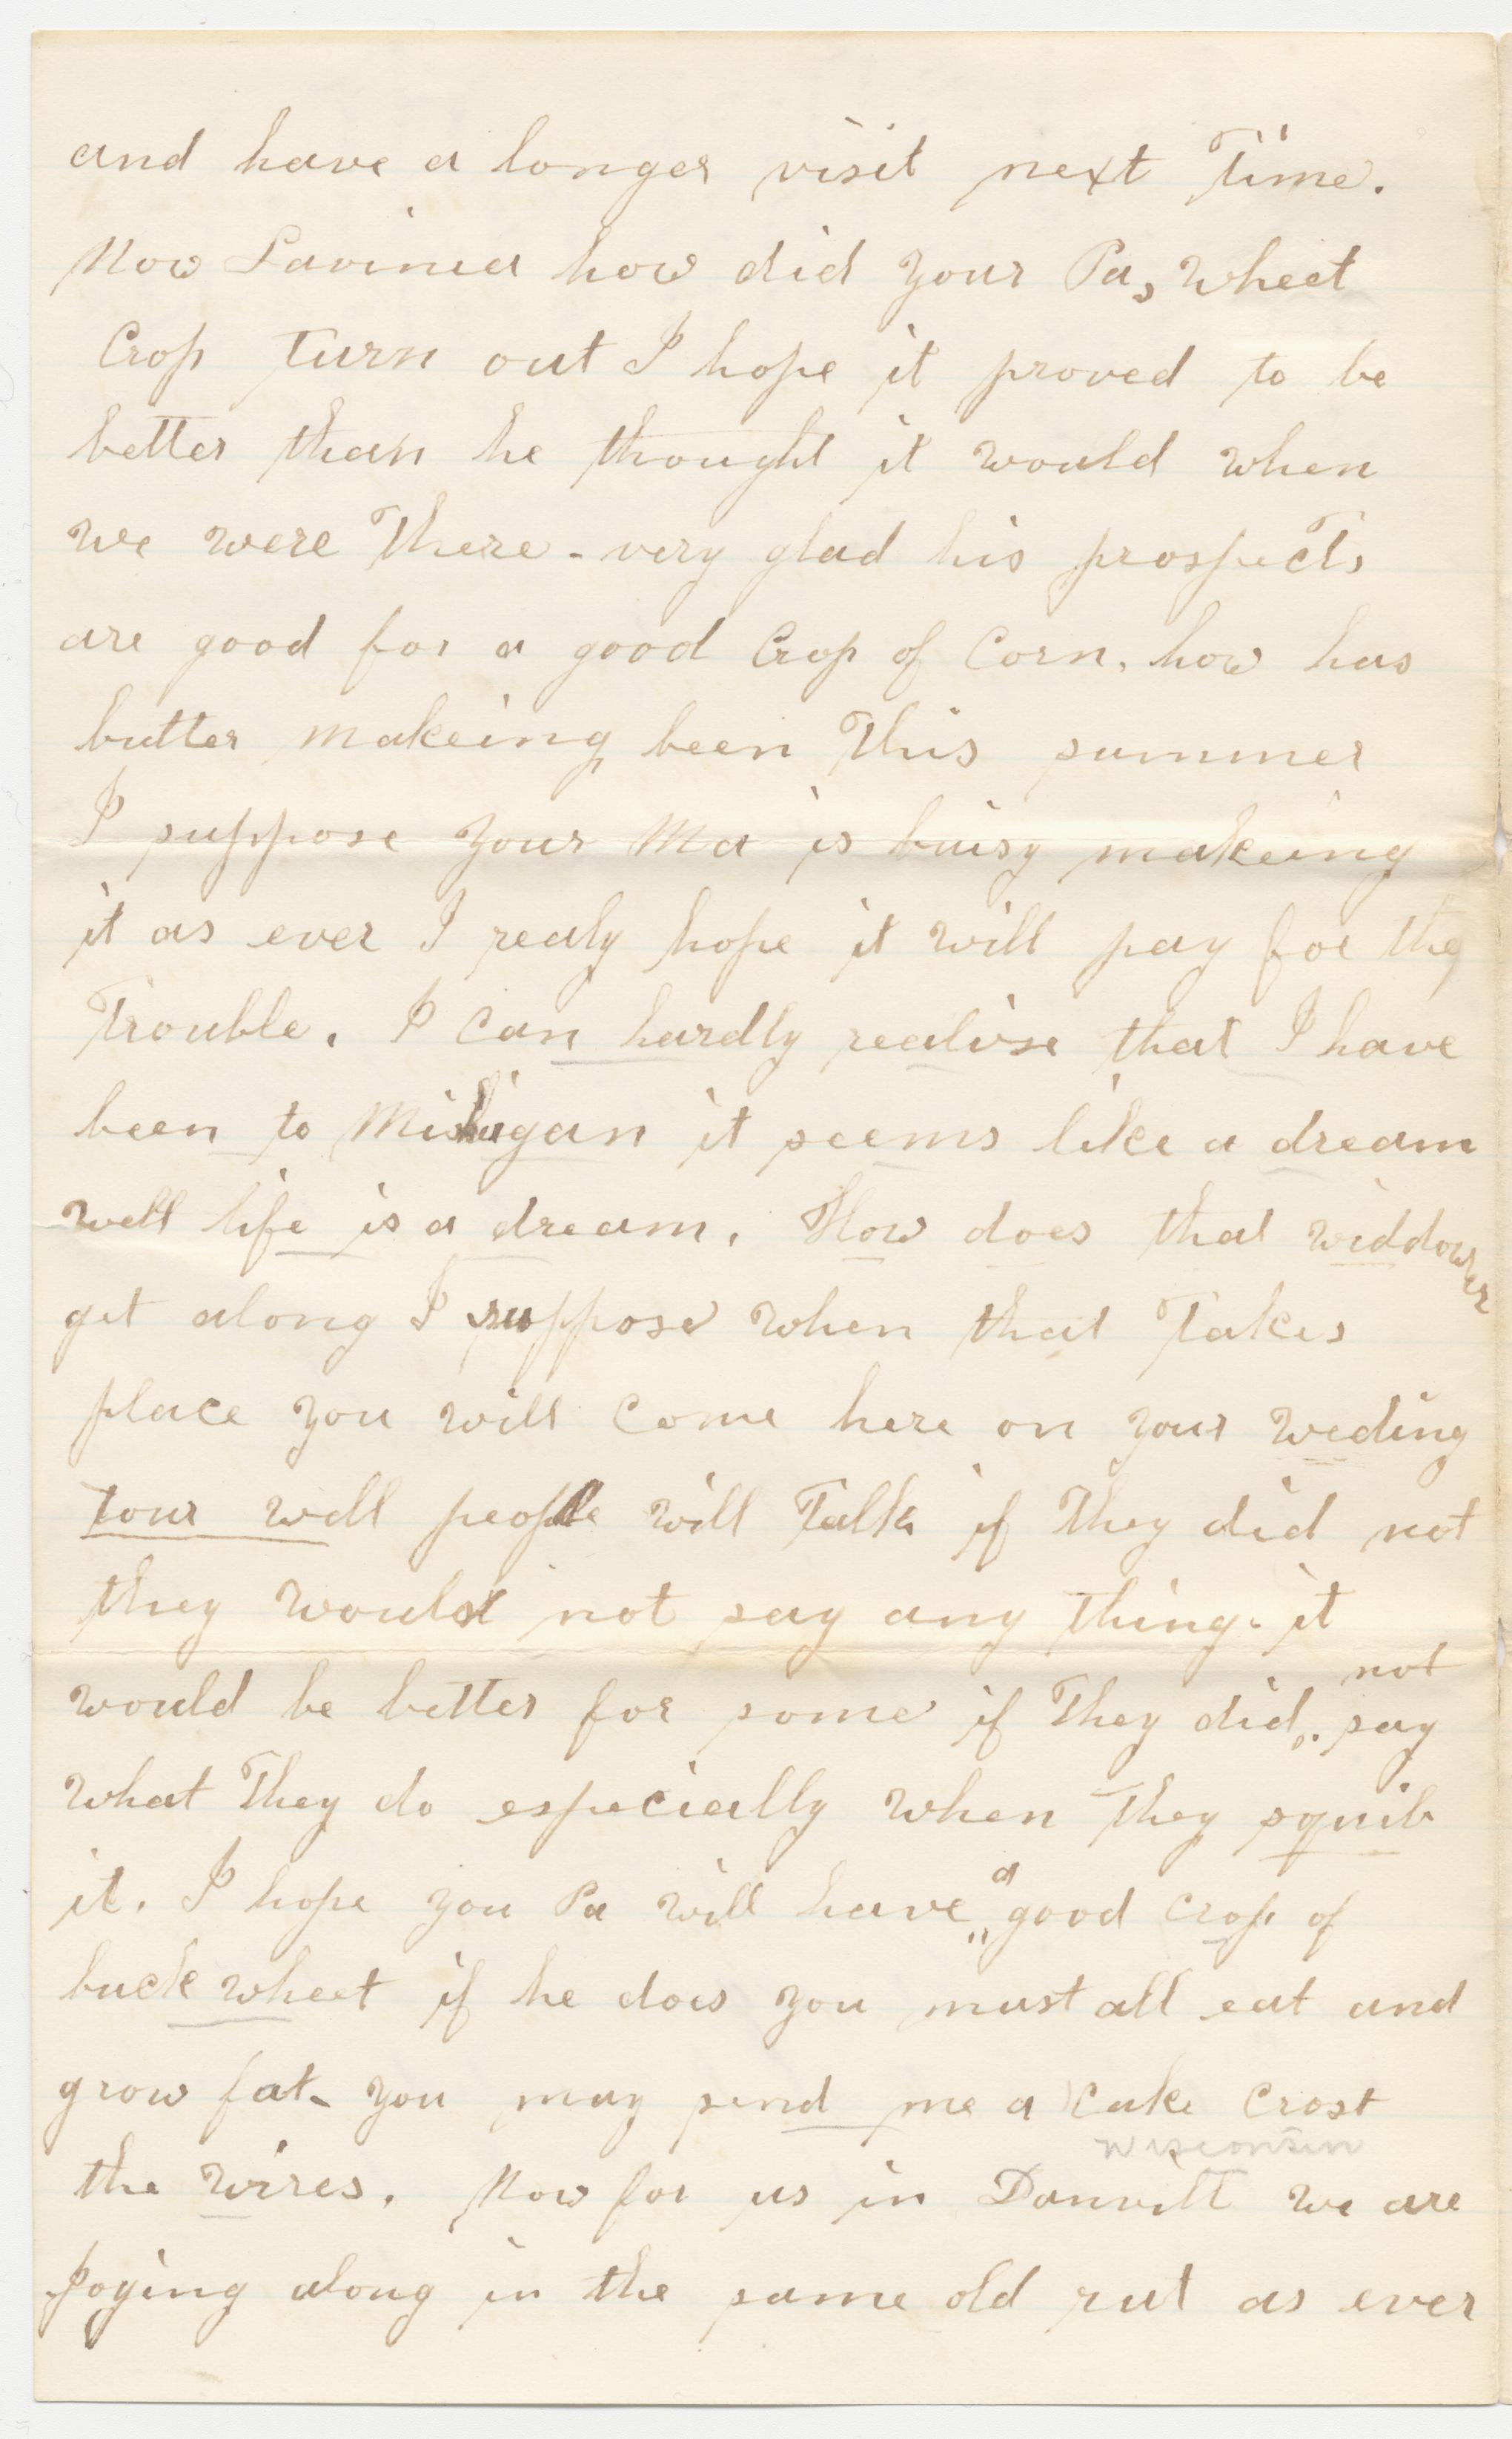 and have a longer visit next Time.
Now Lavinia how did your Pa, wheet
Crop Turn out I hope it proved to be
better than he thought it would when
we were There - very glad his prospects
are good for a good Crop of Corn. how has
butter makeing been This summer
I suppose your Ma is buisy makeing
it as ever I realy hope it will pay for the
Trouble. I can hardly realise that I have
been to Michigan it seems like a dream
well life is a dream. How does that widdower
get along I suppose when that Takes
place you will come here on your weding
tour well people will Talk if They did not
they would not say any Thing. it
would be better for some if They did not say
what They do especially when They squib
it. I hope you Pa will have a good crop of
buck wheet if he does you must all eat and
grow fat - you may send me a cake Crost
Wisconsin
the wires. Now for us in Dunvill we are
Joging along in the same old rut as ever